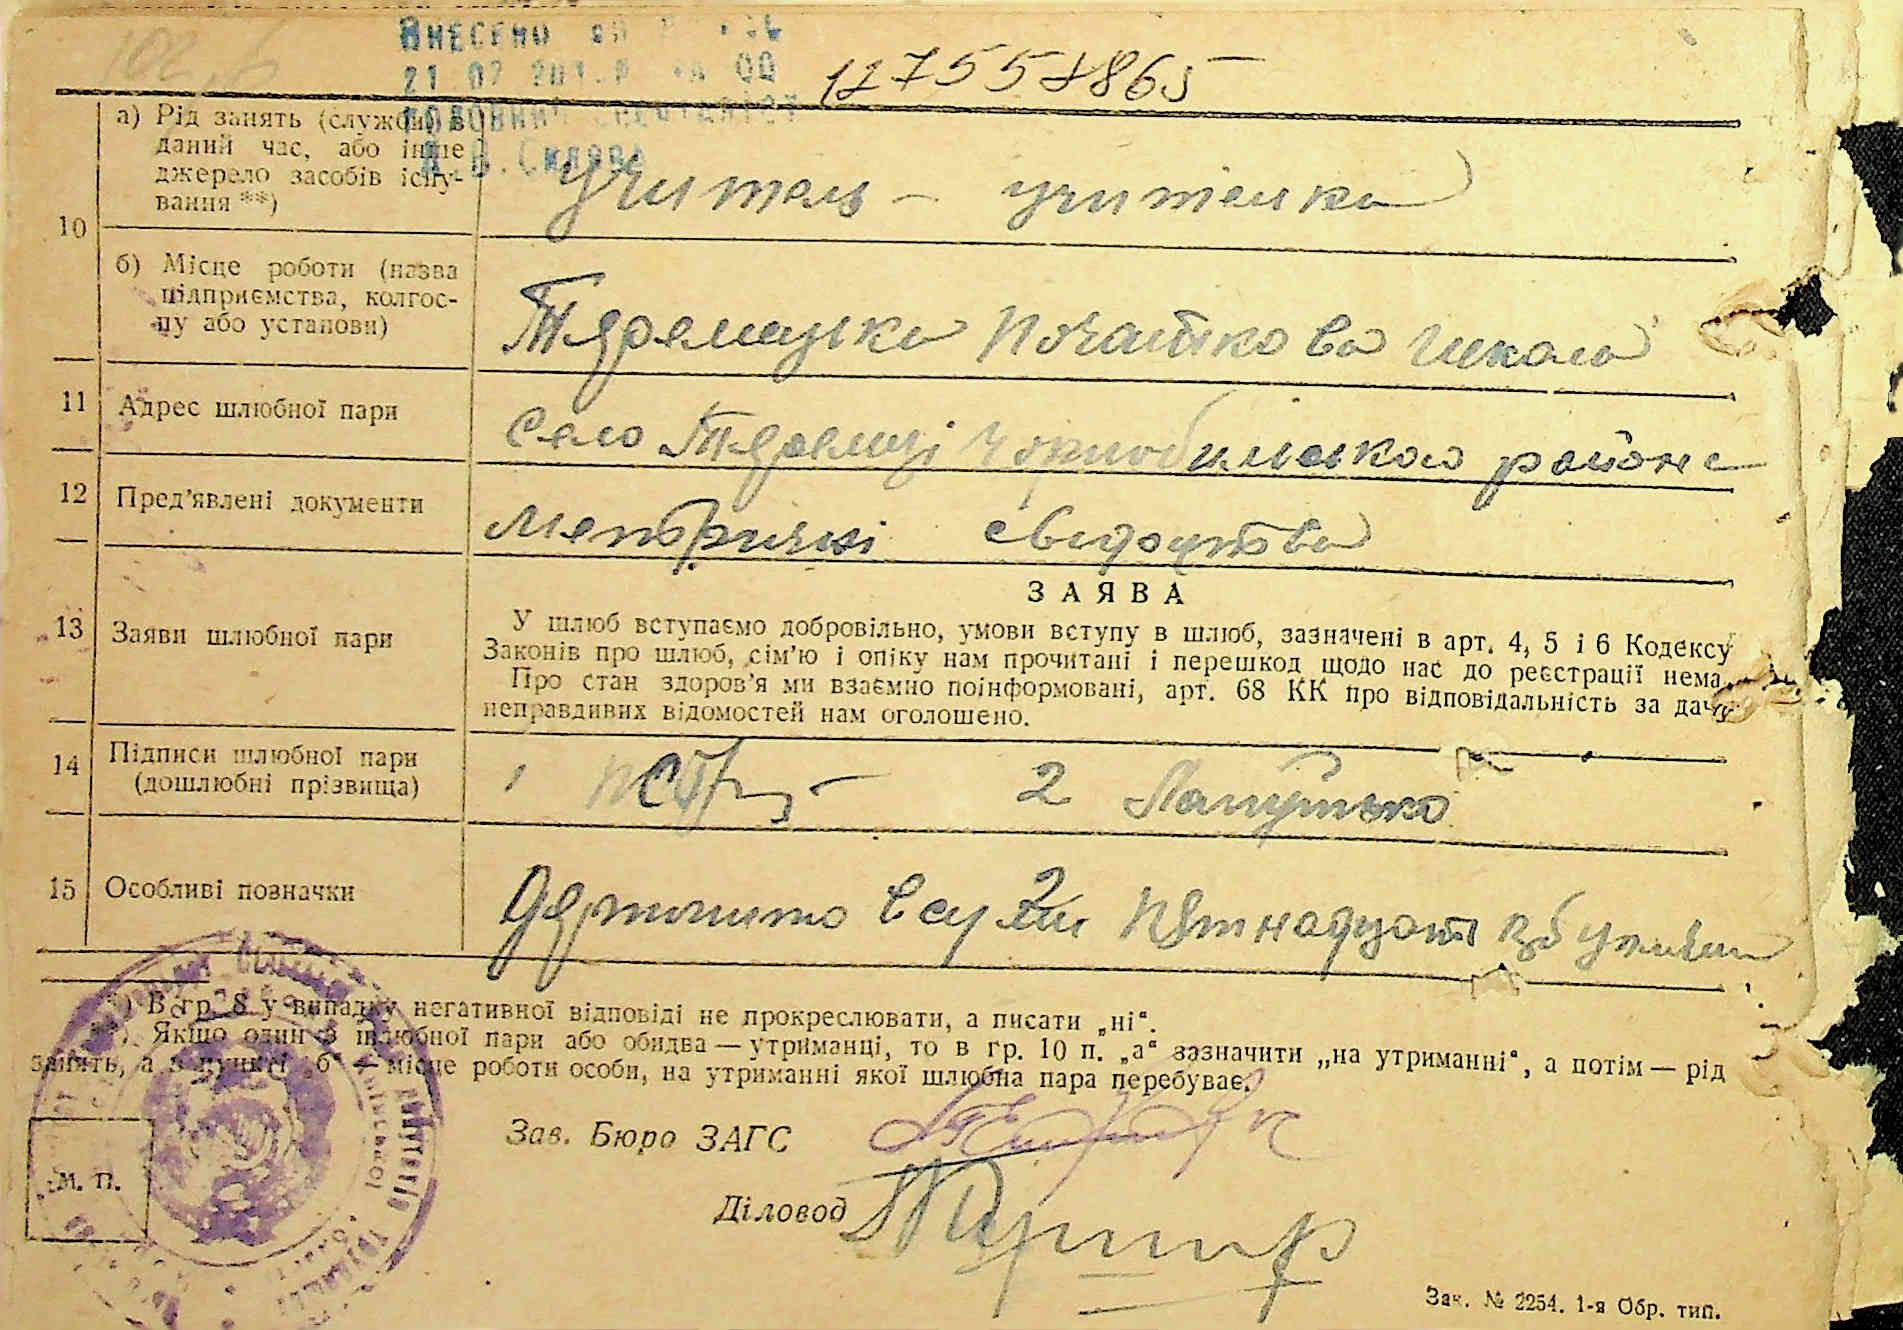 ВНЕСЕНО
127558865
10
а) Рід занять (служби) в
даний час, або інше
джерело засобів існу-
вання **)
Учитель – учителка
б) Місце роботи (назва
підприємства, колгос-
пу або установи)
Теремецька Початкова школа
11 Адрес шлюбної пари
Село Теремці Чорнобильского району
12 Пред'явлені документи
Метричні свидоцтва
13 Заяви шлюбної пари
ЗАЯВА
У шлюб вступаємо добровільно, умови вступу в шлюб, зазначені в арт. 4, 5 і 6 Кодексу
Законів про шлюб, сім'ю і опіку нам прочитані і перешкод щодо нас до реєстрації нема.
Про стан здоров'я ми взаємно поінформовані, арт. 68 КК про відповідальність за дачу
неправдивих відомостей нам оголошено.
14 Підписи шлюбної пари
(дошлюбні прізвища)
1 2
15 Особливі позначки
*) В гр. 8 у випадку негативної відповіді не прокреслювати, а писати „ні“.
**) Якщо один з шлюбної пари або обидва — утриманці, то в гр. 10 п. „а“ зазначити „на утриманні“, а потім — рід
занять, а в пункті „б“ — місце роботи особи, на утриманні якої шлюбна пара перебуває.
Зав. Бюро ЗАГС
М. П.
Діловод
Зак. № 2254. 1-я Обр. тип.